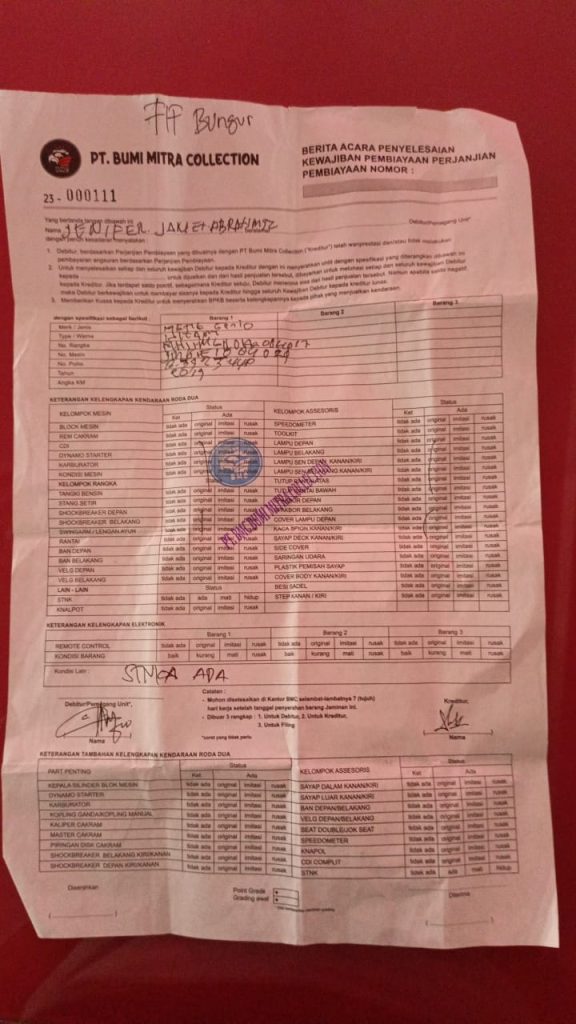 FIF Bungur
PT. BUMI MITRA COLLECTION
BERITA ACARA PENYELESAIAN
KEWAJIBAN PEMBIAYAAN PERJANJIAN
PEMBIAYAAN NOMOR :
23 - 000111
Yang bertanda tangan dibawah ini
Nama JENIFER. JANET ABRAHAMZ Debitur/Pemegang Unit*
dengan penuh kesadaran menyatakan :
1. Debitur, berdasarkan Perjanjian Pembiayaan yang dibuatnya dengan PT Bumi Mitra Collection ("Kreditur") telah wanprestasi dan/atau tidak melakukan
pembayaran angsuran berdasarkan Perjanjian Pembiayaan.
2. Untuk menyelesaikan setiap dan seluruh kewajiban Debitur kepada Kreditur dengan ini menyerahkan unit dengan spesifikasi yang diterangkan dibawah ini
kepada untuk dijualkan dan dari hasil penjualan tersebut, dibayarkan untuk melunasi setiap dan seluruh kewajiban Debitur
kepada Kreditur. Jika terdapat saldo positif, sebagaimana Kreditur setuju, Debitur menerima sisa dari hasil penjualan tersebut. Namun apabila saldo negatif
maka Debitur berkewajiban untuk membayar sisanya kepada Kreditur hingga seluruh Kewajiban Debitur kepada kreditur lunas.
3. Memberikan Kuasa kepada Kreditur untuk menyerahkan BPKB beserta kelengkapannya kepada pihak yang menjualkan kendaraan.
dengan spesifikasi sebagai berikut : Barang 1 Barang 2 Barang 3
Merk / Jenis
Type / Warna HITAM
No. Rangka
No. Mesin
No. Polisi
Tahun 2019
Angka KM
KETERANGAN KELENGKAPAN KENDARAAN RODA DUA
KELOMPOK MESIN Status Ket Ada KELOMPOK ASSESORIS Status Ket Ada
BLOCK MESIN tidak ada original imitasi rusak SPEEDOMETER tidak ada original imitasi rusak
REM CAKRAM tidak ada original imitasi rusak TOOLKIT tidak ada original imitasi rusak
CDI tidak ada original imitasi rusak LAMPU DEPAN tidak ada original imitasi rusak
DYNAMO STARTER tidak ada original imitasi rusak LAMPU BELAKANG tidak ada original imitasi rusak
KARBURATOR tidak ada original imitasi rusak LAMPU SEN DEPAN KANAN/KIRI tidak ada original imitasi rusak
KONDISI MESIN tidak ada original imitasi rusak LAMPU SEN KANAN/KIRI tidak ada original imitasi rusak
KELOMPOK RANGKA TUTUP tidak ada original imitasi rusak
TANGKI BENSIN tidak ada original imitasi rusak BAWAH tidak ada original imitasi rusak
STANG SETIR tidak ada original imitasi rusak DEPAN tidak ada original imitasi rusak
SHOCKBREAKER DEPAN tidak ada original imitasi rusak BELAKANG tidak ada original imitasi rusak
SHOCKBREAKER BELAKANG tidak ada original imitasi rusak COVER LAMPU DEPAN tidak ada original imitasi rusak
SWINGARM / LENGAN AYUN tidak ada original imitasi rusak KACA SPION KANAN/KIRI tidak ada original imitasi rusak
RANTAI tidak ada original imitasi rusak SAYAP DECK KANAN/KIRI tidak ada original imitasi rusak
BAN DEPAN tidak ada original imitasi rusak SIDE COVER tidak ada original imitasi rusak
BAN BELAKANG tidak ada original imitasi rusak SARINGAN UDARA tidak ada original imitasi rusak
VELG DEPAN tidak ada original imitasi rusak PLASTIK PEMISAH SAYAP tidak ada original imitasi rusak
VELG BELAKANG tidak ada original imitasi rusak COVER BODY KANAN/KIRI tidak ada original imitasi rusak
LAIN - LAIN Status BESI SADEL tidak ada original imitasi rusak
STNK tidak ada ada mati hidup STEP KANAN / KIRI tidak ada original imitasi rusak
KNALPOT tidak ada original imitasi rusak
PT. BUMI MITRA COLLECTION
KETERANGAN KELENGKAPAN ELEKTRONIK
Barang 1 Barang 2 Barang 3
REMOTE CONTROL tidak ada original imitasi rusak tidak ada original imitasi rusak tidak ada original imitasi rusak
KONDISI BARANG baik kurang mati rusak baik kurang mati rusak baik kurang mati rusak
Kondisi Lain : STNKA ADA
Catatan :
- Mohon diselesaikan di Kantor BMC selambat-lambatnya 7 (tujuh)
hari kerja setelah tanggal penyerahan barang Jaminan ini.
- Dibuat 3 rangkap : 1. Untuk Debitur, 2. Untuk Kreditur,
3. Untuk Filing
*coret yang tidak perlu
Debitur/Pemegang Unit*, Kreditur,
Nama Nama
KETERANGAN TAMBAHAN KELENGKAPAN KENDARAAN RODA DUA
PART PENTING Status Ket Ada KELOMPOK ASSESORIS Status Ket Ada
KEPALA SILINDER BLOK MESIN tidak ada original imitasi rusak SAYAP DALAM KANAN/KIRI tidak ada original imitasi rusak
DYNAMO STARTER tidak ada original imitasi rusak SAYAP LUAR KANAN/KIRI tidak ada original imitasi rusak
KARBURATOR tidak ada original imitasi rusak BAN DEPAN/BELAKANG tidak ada original imitasi rusak
KOPLING GANDA/KOPLING MANUAL tidak ada original imitasi rusak VELG DEPAN/BELAKANG tidak ada original imitasi rusak
KALIPER CAKRAM tidak ada original imitasi rusak SEAT DOUBLE/JOK SEAT tidak ada original imitasi rusak
MASTER CAKRAM tidak ada original imitasi rusak SPEEDOMETER tidak ada original imitasi rusak
PIRINGAN DISK CAKRAM tidak ada original imitasi rusak KNAPOL tidak ada original imitasi rusak
SHOCKBREAKER BELAKANG KIRI/KANAN tidak ada original imitasi rusak CDI COMPLIT tidak ada original imitasi rusak
SHOCKBREAKER DEPAN KIRI/KANAN tidak ada original imitasi rusak STNK tidak ada ada mati hidup
Diserahkan Point Grade Diterima
Grading awal